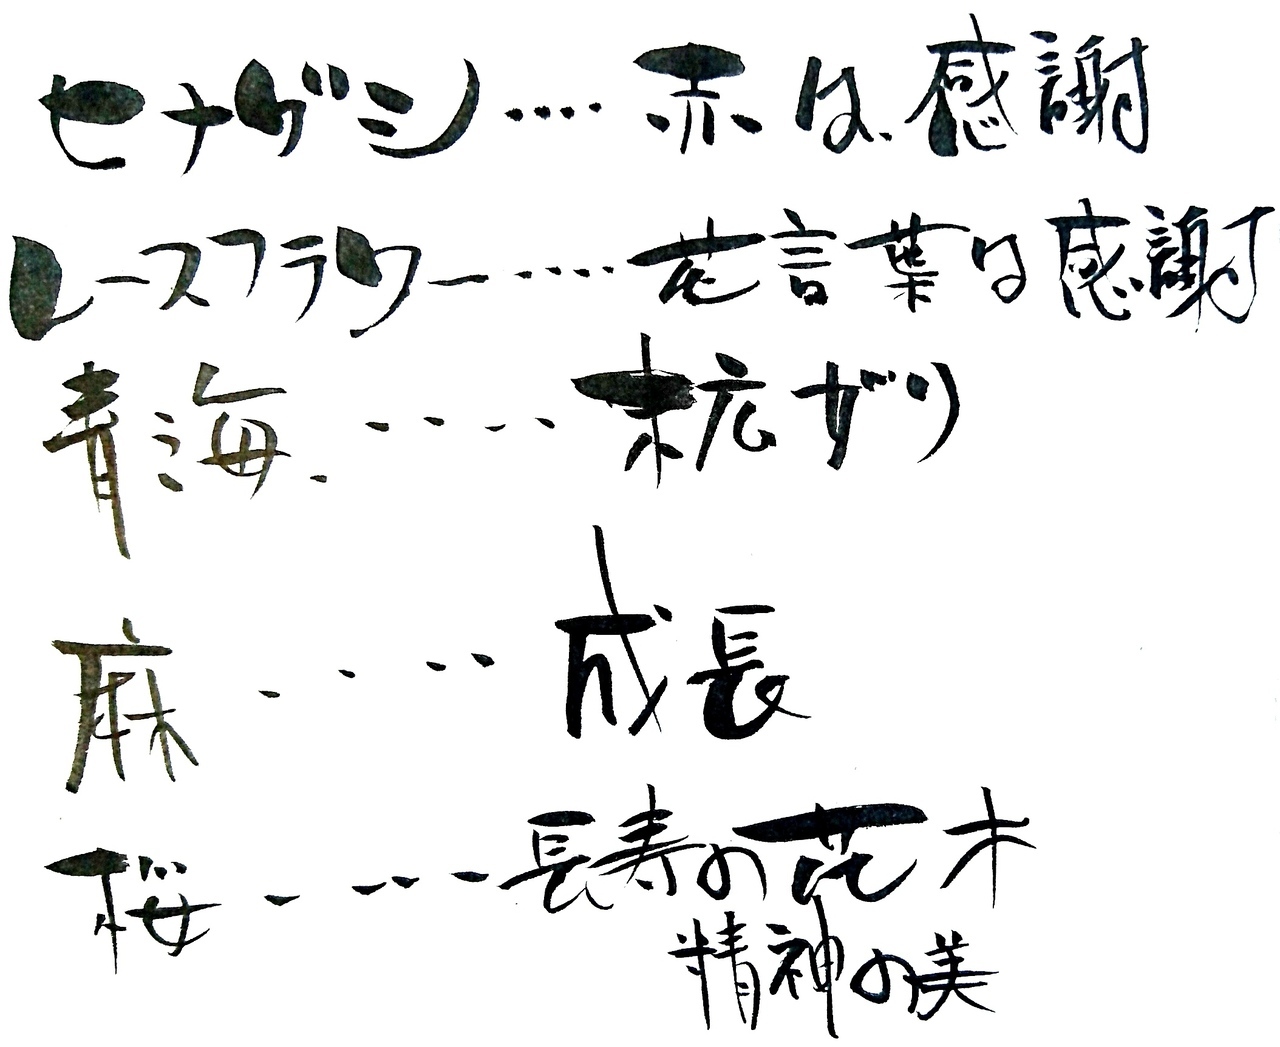 ヒナゲシ‥‥赤は感謝
レースフラワー‥‥‥花言葉は感謝
青海‥‥末広ガリ
麻‥‥成長
桜‥‥長寿の花木
精神の美